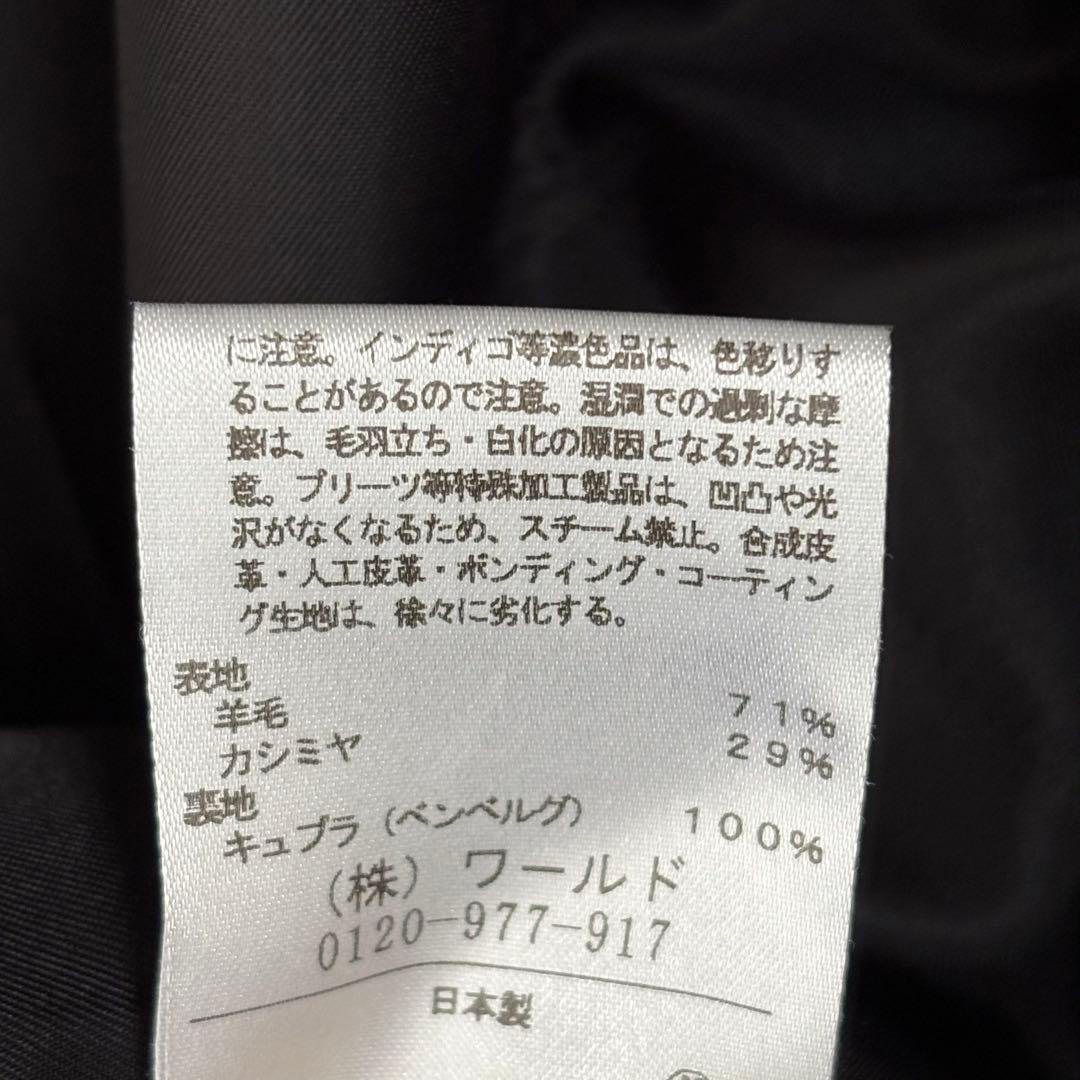 に注意。インディゴ等濃色品は、色移りす
ることがあるので注意。湿潤での過剰な摩
擦は、毛羽立ち・白化の原因となるため注
意。プリーツ等特殊加工製品は、凹凸や光
沢がなくなるため、スチーム禁止。合成皮
革・人工皮革・ボンディング・コーティン
グ生地は、徐々に劣化する。
表地
羊毛 71%
カシミヤ 29%
裏地
キュプラ(ベンベルグ) 100%
(株)ワールド
0120-977-917
日本製